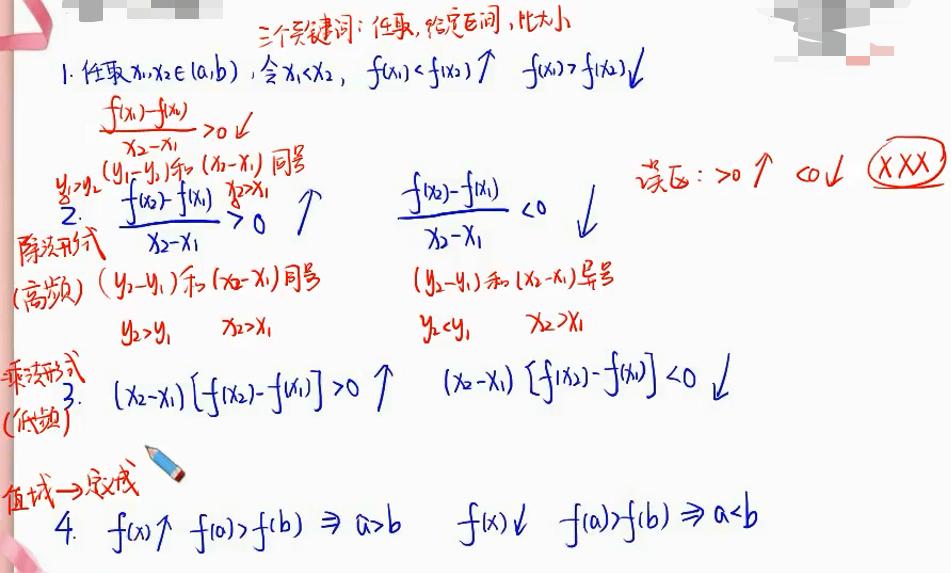 三个关键词：任取，给定区间，比大小
1. 任取x₁,x₂∈(a,b)，令x₁<x₂， f(x₁)<f(x₂)↑ f(x₁)>f(x₂)↓
f(x₁)-f(x₂)/x₂-x₁ >0 ↓
(y₁-y₂)和(x₂-x₁)同号
y₁>y₂ x₂>x₁
误区：>0↑ <0↓ (×××)
2. f(x₂)-f(x₁)/x₂-x₁ >0 ↑ f(x₂)-f(x₁)/x₂-x₁ <0 ↓
除法形式
(高频) (y₂-y₁)和(x₂-x₁)同号 (y₂-y₁)和(x₂-x₁)异号
y₂>y₁ x₂>x₁ y₂<y₁ x₂>x₁
乘法形式
3. (x₂-x₁)[f(x₂)-f(x₁)]>0 ↑ (x₂-x₁)[f(x₂)-f(x₁)]<0 ↓
(低频)
值域→定义域
4. f(x)↑ f(a)>f(b) ⇒ a>b f(x)↓ f(a)>f(b) ⇒ a<b